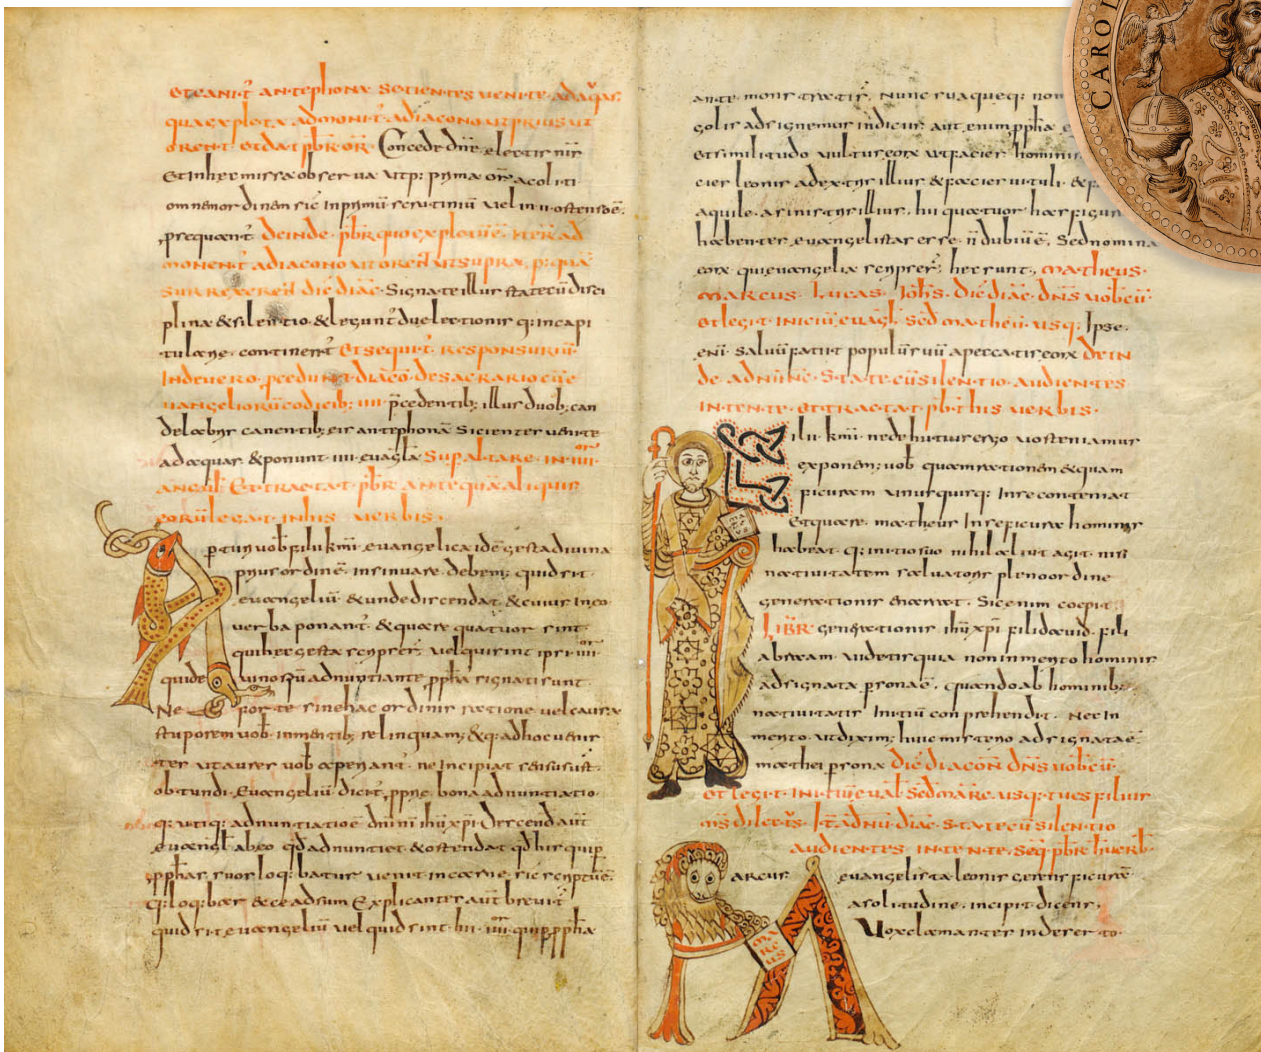 et canit̄ antephona sitientes uenite ad aq̄as
qua expleta admonit̄ a diacono ut prius ut
orent et dat pb̄r or̄. Concede dn̄e electis n̄is
Et in hec missa obserua ut p̱ prima or̄ acoliti
omnem ordinem sic in primū scrutiniū uel in ii ostensū ē.
deinde. pb̄r quo expletū ē iterū ad
monent̄ a diacono ut oren̄t ut supra. p̱ quā
surrexerent dic̄ diac̄. Signate illus state cū disci
plina & silentio. & legunt̄ due lectionis q: in capi
tulare. continen̄t Et sequit̄. responsuriū
Inde uero. p̱cedunt diacō. de sacrario cū e
uangeliorū codicib; iiii p̄cedentib; illus duob; can
delabris canentib; eis antephonā Sicienter uenite
ad aquas. & ponunt iiii euāgl̄a Sup̱ altare. in iiii
anḡul̄ Et tractat pb̄r antequa aliquis
eorū legat in his uerbis.
Apturi uob̄ filii km̄i euangelica id ē gesta diuina
prius ordinē. insinuare debem; quid sit
euangeliū & unde discendat & cuius in eo
uerba ponant̄. & quare quattuor sint
qui hec gesta scripser̄. uel qui sint ipsi iiii or
quide diuino sp̄ū adnuntiante p̱ph̄a signati sunt
Ne forte sine hac ordinis ratione uel causa
stuporem uob̄ in mentib; relinquam; & q: ad hoc uenis
ter ut aures uob̄ aperiant. ne incipiat sensus ust̄
obtundi. Euangeliū dicit̄ p̱priae bona adnuntiatio
q: utiq: adnuntiatio ē dn̄i n̄i ih̄u xp̄i Descend aūt
euangl̄ ab eo q̱d adnuntiet & ostendat q̱d his qui p̱
p̱phas suos loq:batur uenit in carne sic scriptū ē.
q: loq:bar & ecce adsum Explicanter aūt breuit̄
quid sit euangeliū uel quid sint hii iiii or qui p̱ p̱pha
ante monstratis. Nunc suaqueq: nom
solis adsignemus indicus. aut enim p̱ph̄a e
et similitudo uultus eor̄ ut facier hominis
cier leonis adextris illius & facier uituli & fa
aquile. asinistris illius. hii quattuor has figur
habenter euangelistas esse n̄ dubiū ē. Sed nomina
eor̄ qui euangelia scripser̄. hec sunt. Matheus.
Marcus. Lucas. Joh̄s. dic̄ diac̄. dn̄s uob̄cū.
et legit iniciū euagl̄. sed̄ matheū usq: Ipse.
eni saluū faciet populū suū a peccatis eor̄ dein
de. adnūnc̄. State cū silentio audientes
intente. Et tractat pb̄ his uerbis.
Filii km̄i ne de hutius ergo uos teniamus
exponem; uob̄ quam rationem & quam
ficuram unusquisq: In se contenat
Et quare. matheus in se ficura hominis
habeat. q: initio suo nihil aliut agit nisi
natiuitatem saluatoris pleno ordine
generationis enarrat. Sic enim coepit
LIB̄R generationis ih̄u xp̄i filii dauid. fili
abraam. Uidetis quia non inmerito hominis
adsignata p̱sona ē. quando ab hominib;
natiuitatis Initiū conprehendit. Nec in
merito ut diximus; huic misterio adsignata ē
mathei p̱sona dic̄ diacon̄ dn̄s uob̄cū
et legit. initiū euāl̄ sed̄ marc̄. usq: tu es filius
m̄s dilet̄s. It̄ adnū diac̄. State cū silentio
audientes. intente. Seq̄ pb̄r h̄ uerb̄.
Marcus euangelista leonis gerens ficurā
a solitudine. incipit dicens.
Uox clamanter in deserto.
MARCUS
CAROL